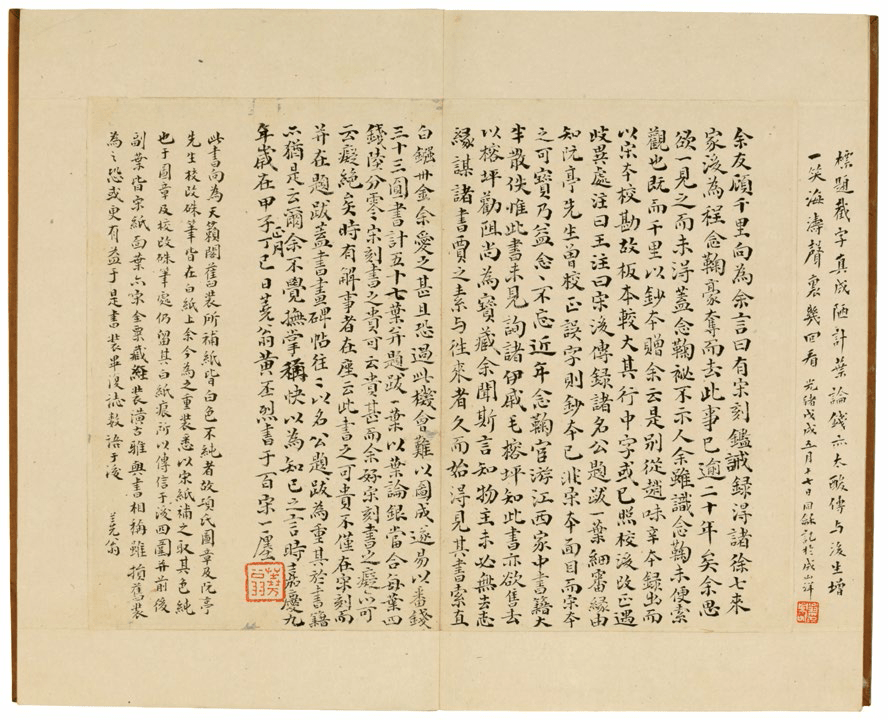 標題截字真成陋計葉論錢亦太酸傳与後生增
一笑海濤聲裏幾回看 光緒戊戌五月十七日回穌記於成山洋
余友顧千里向為余言曰有宋刻鑑誡録得諸徐七來
家後為程念鞠豪奪而去此事已逾二十年矣余思
欲一見之而未得蓋念鞠祕不示人余雖識念鞠未便索
觀也既而千里以鈔本贈余云是別從趙味辛本録出而
以宋本校勘故板本較大其行中字或已照校後改正遇
歧異處注曰王注曰宋後傳録諸名公題跋一葉細審緣由
知阮亭先生曾校正誤字則鈔本已非宋本面目而宋本
之可寶乃益念〻不忘近年念鞠宦游江西家中書籍大
半散佚惟此書未見詢諸伊戚毛榕坪知此書亦欲售去
以榕坪勸阻尚為寶藏余聞斯言知物主未必無去志
緣謀諸書賈之素与往來者久而始得見其書索直
白鏹卅金余愛之甚且恐過此機會難以圖成遂易以番錢
三十三圓書計五十七葉并題跋一葉以葉論銀當合每葉四
錢陸分零〻宋刻書之貴可云貴甚而余好宋刻書之癡亦可
云癡絶矣時有解事者在座云此書之可貴不僅在宋刻而
并在題跋蓋書畫碑帖往〻以名公題跋為重其於書籍
亦猶是云爾余不覺撫掌稱快以為知己之言時嘉慶九
年歲在甲子正月丁巳日蕘翁黃丕烈書于百宋一廛
蕘翁
此書向為天籟閣舊裝所補紙皆白色不純者故項氏圖章及阮亭
先生校改硃筆皆在白紙上余今為之重裝悉以宋紙補之取其色純
也于圖章及校改硃筆處仍留其白紙痕所以傳信于後四圍并前後
副葉皆宋紙面葉亦宋金粟藏經裝潢古雅與書相稱雖損舊裝
為之恐或更有益于是書裝畢復誌數語于後 蕘翁